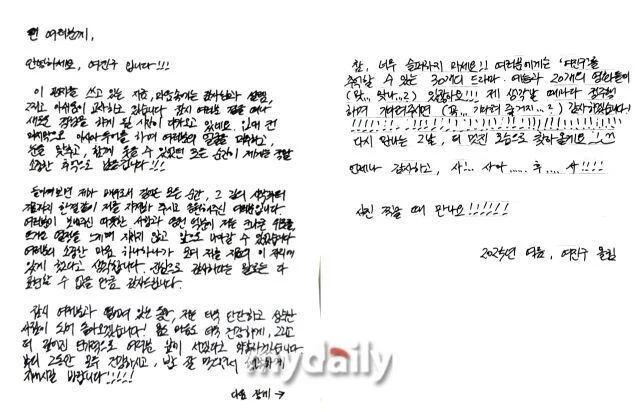 팬 여러분께,
안녕하세요, 여진구 입니다!!!
이 편지를 쓰고 있는 지금, 마음속에는 감사함과 설렘,
그리고 아쉬움이 교차하고 있습니다. 잠시 여러분 곁을 떠나
새로운 경험을 하게 될 시점이 다가오고 있네요. 입대 전
마지막으로 아시아 투어를 하며 여러분의 얼굴을 마주하고,
눈을 맞추고, 함께 웃을 수 있었던 모든 순간이 제게는 정말
소중한 추억으로 남았습니다!!!
돌이켜보면 제가 배우로서 걸어온 모든 순간, 그 길의 시작부터
지금까지 한결같이 저를 지켜봐 주시고 응원해주신 여러분입니다.
여러분이 보내주신 따뜻한 사랑과 응원 덕분에 저는 크나큰 위로를,
뜨거운 열정을 느끼며 지치지 않고 앞으로 나아갈 수 있었습니다.
여러분의 소중한 마음 하나하나가 모여 저를 지금의 이 자리에
있게 했다고 생각합니다. 진심으로 감사하다는 말로는 다
표현할 수 없을 만큼 감사드립니다.
잠시 여러분과 떨어져 있는 동안, 저는 더욱 단단하고 성숙한
사람이 되어 돌아오겠습니다! 몸도 마음도 더욱 건강하게, 그리고
더 깊어진 연기력으로 여러분 앞에 서겠다고 약속하겠습니다
부디 그동안 모두 건강하시고, 밥 잘 먹으면서
지내시길 바랍니다!!!!!
다음 장에 →
참, 너무 슬퍼하지 마세요!! 여러분에게는 '여진구'를
추억할 수 있는 30개의 드라마·예능과 20개의 영화들이
(맞... 맞나..?) 있잖아요!!! 제 생각날 때마다 정주행
하며 기다려주시면 (꼭.. 기다려 줄거지..?) 감사하겠습니다!
!!!!!!!!!!!!!!!!!!!!!!!!!!!!!!!!!!!!!!!!
다시 만나는 그날, 더 멋진 모습으로 찾아올게요!^^
언제나 감사하고, 사!... 사아......후.... 사!!!!
사진 찍을 때 만나요!!!!!!
2025년 여름, 여진구 올림
mydaily